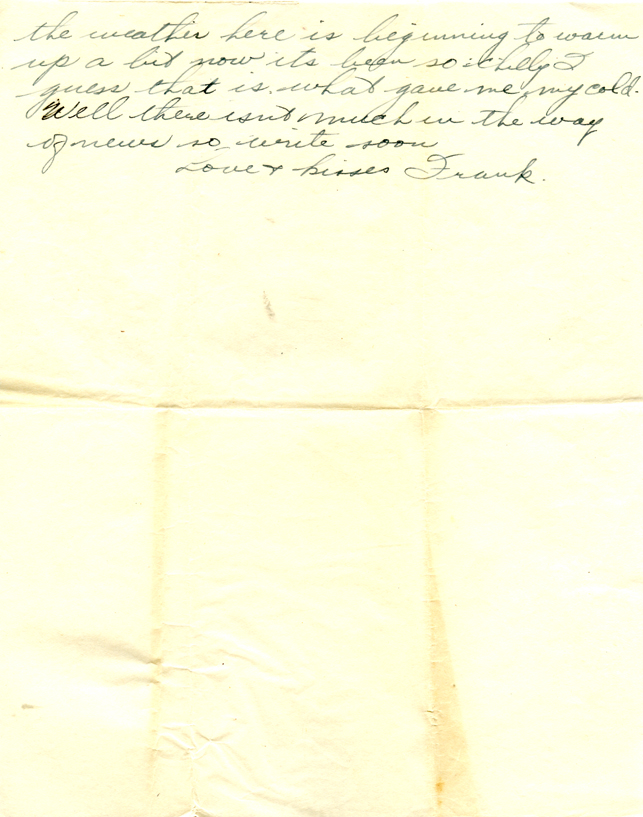 the weather here is beginning to warm
up a bit now its been so chilly I
guess that is what gave me my cold.
Well there isnt much in the way
of news so write soon
Love & kisses Frank.